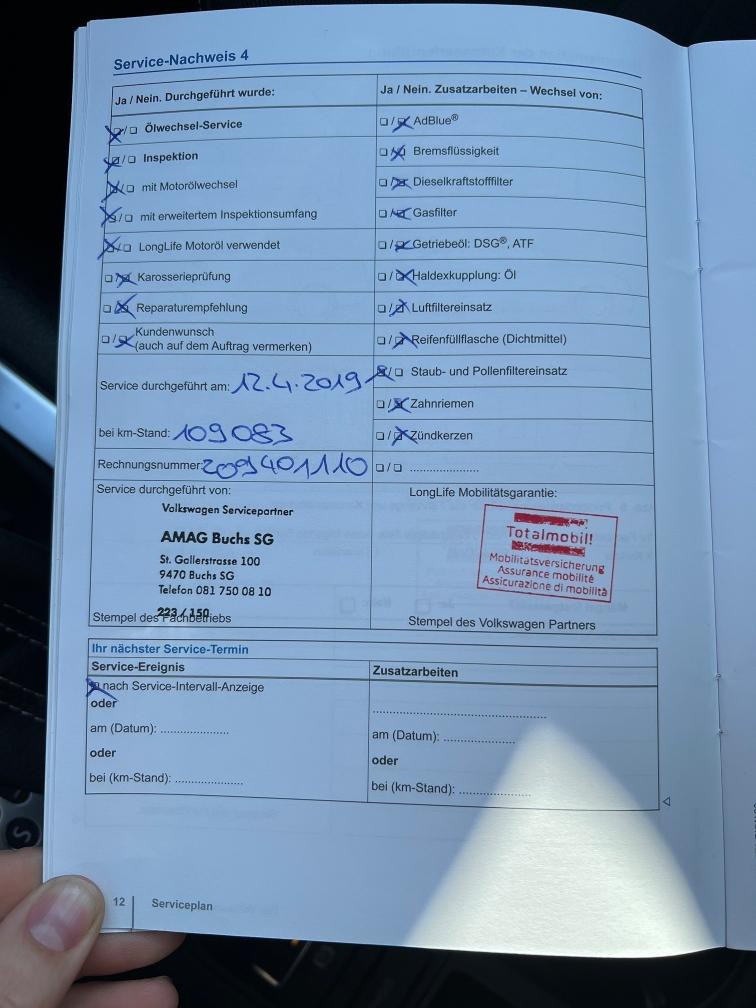 Service-Nachweis 4
Ja / Nein. Durchgeführt wurde:
☒/☐ Ölwechsel-Service
☒/☐ Inspektion
☒/☐ mit Motorölwechsel
☒/☐ mit erweitertem Inspektionsumfang
☒/☐ LongLife Motoröl verwendet
☐/☒ Karosserieprüfung
☐/☒ Reparaturempfehlung
☐/☒ Kundenwunsch
(auch auf dem Auftrag vermerken)
Service durchgeführt am: 12.4.2019
bei km-Stand: 109083
Rechnungsnummer: 2099401110
Service durchgeführt von:
Volkswagen Servicepartner
AMAG Buchs SG
St. Gallerstrasse 100
9470 Buchs SG
Telefon 081 750 08 10
223 / 150
Stempel des Fachbetriebs
Ja / Nein. Zusatzarbeiten – Wechsel von:
☐/☒ AdBlue®
☐/☒ Bremsflüssigkeit
☐/☒ Dieselkraftstofffilter
☐/☒ Gasfilter
☐/☒ Getriebeöl: DSG®, ATF
☐/☒ Haldexkupplung: Öl
☐/☒ Luftfiltereinsatz
☐/☒ Reifenfüllflasche (Dichtmittel)
☒/☐ Staub- und Pollenfiltereinsatz
☐/☒ Zahnriemen
☐/☒ Zündkerzen
☐/☐ .....................
LongLife Mobilitätsgarantie:
Totalmobil!
Mobilitätsversicherung
Assurance mobilité
Assicurazione di mobilità
Stempel des Volkswagen Partners
Ihr nächster Service-Termin
Service-Ereignis
☒ nach Service-Intervall-Anzeige
oder
am (Datum): .....................
oder
bei (km-Stand): .....................
Zusatzarbeiten
.....................
am (Datum): .....................
oder
bei (km-Stand): .....................
12
Serviceplan